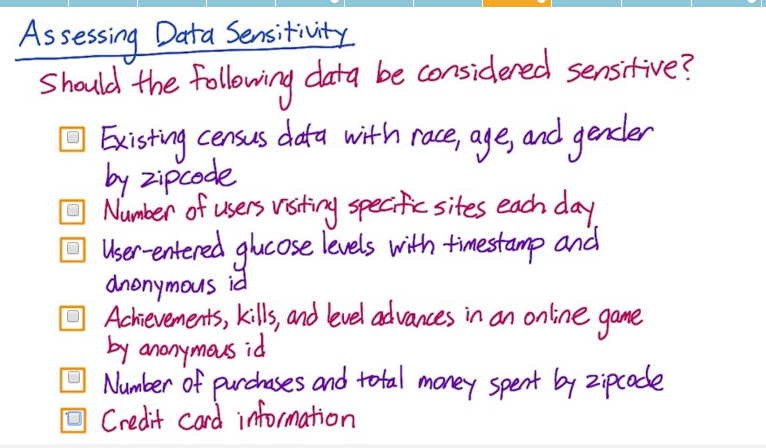 Assessing Data Sensitivity
Should the following data be considered sensitive?
Existing census data with race, age, and gender
by zipcode
Number of users visiting specific sites each day
User-entered glucose levels with timestamp and
anonymous id
Achievements, kills, and level advances in an online game
by anonymous id
Number of purchases and total money spent by zipcode
Credit card information